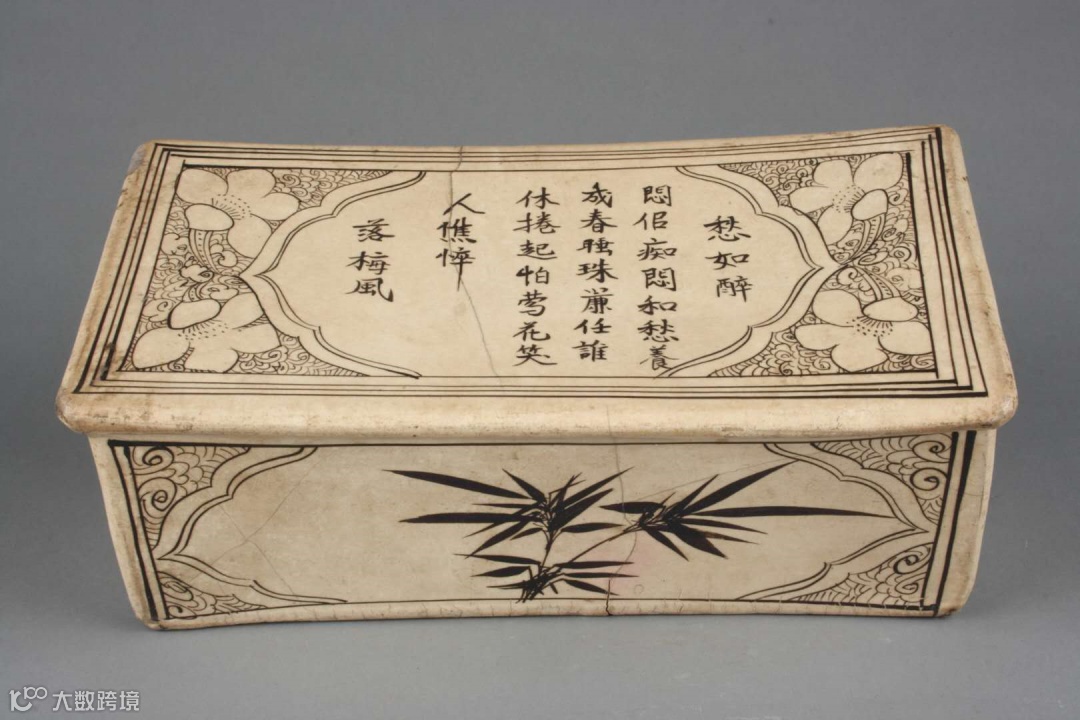 愁如醉
悶佀痴悶和愁養
成春睡珠簾任誰
休捲起怕莺花笑
人憔悴
落梅風
大数跨境